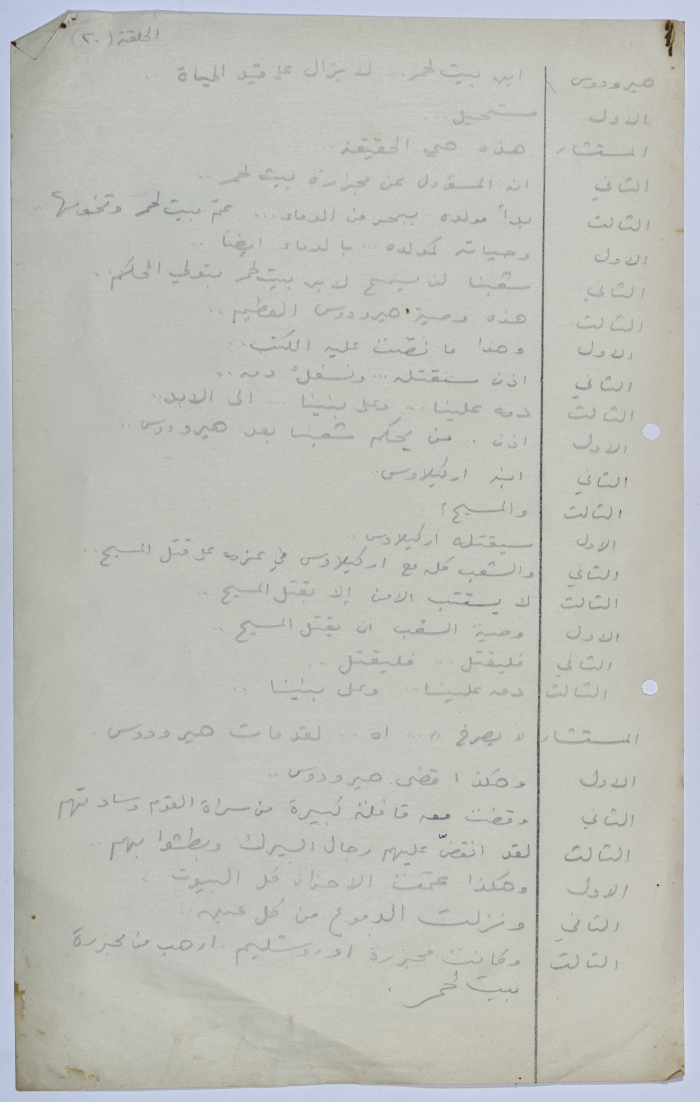 الحلقة (٢٠)
هيرودوس ابن بيت لحم... لا يزال على قيد الحياة ..
الاول مستحيل...
المستشار هذه هي الحقيقة..
الثاني انه المسؤول عن مجزرة بيت لحم ..
الثالث بدأ مولده ببحر من الدماء... عمّ بيت لحم وتخومها ..
الاول وحياته كمولده... بالدماء ايضاً ..
الثاني شعبنا لن يسمح لابن بيت لحم بتولي الحكم..
الثالث هذه وصية هيرودوس العظيم..
الاول وهذا ما نصّت عليه الكتب..
الثاني اذن سنقتله... ونسفك دمه..
الثالث دمه علينا... وعلى بنينا ... الى الابد..
الاول اذن .. من يحكم شعبنا بعد هيرودوس ..
الثاني ابنه اركيلاوس.
الثالث والمسيح؟
الاول سيقتله اركيلاوس..
الثاني والشعب كله مع اركيلاوس في عزمه على قتل المسيح..
الثالث لا يستتب الامن إلا بقتل المسيح ..
الاول وصية الشعب ان يقتل المسيح ..
الثاني فليقتل ... فليقتل ..
الثالث دمه علينا.. وعلى بنينا ..
المستشار " يصرخ "... اه ... لقد مات هيرودوس.
الاول وهكذا قضى هيرودوس..
الثاني وقضت معه قافلة كبيرة من سراة القوم وسادتهم
الثالث لقد انقضّ عليهم رجال البيرك وبطشوا بهم ..
الاول وهكذا عمّت الاحزان كل البيوت .
الثاني ونزلت الدموع من كل عين..
الثالث وكانت مجزرة اوروشليم. ارهب من مجزرة
بيت لحم .